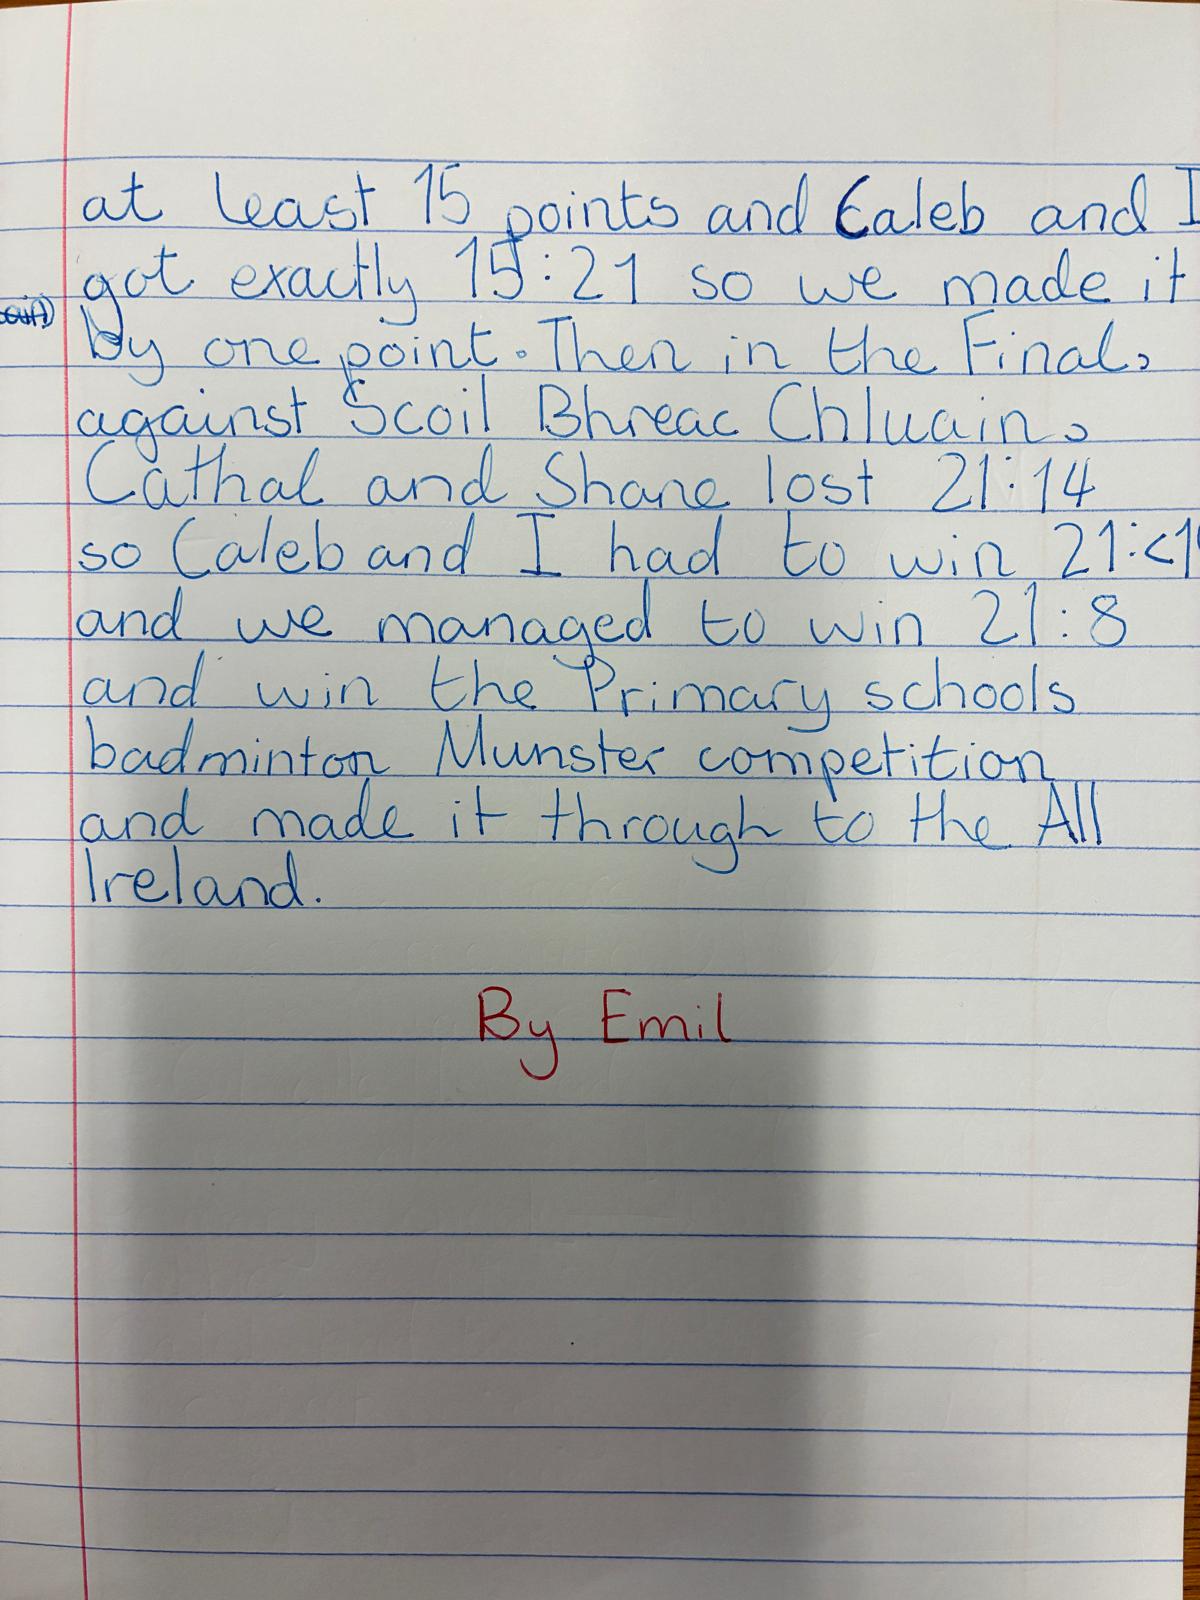 at least 15 points and Caleb and I
got exactly 15:21 so we made it
by one point. Then in the Final,
against Scoil Bhreac Chluain,
Cathal and Shane lost 21:14
so Caleb and I had to win
and we managed to win 21:8
and win the Primary schools
badminton Munster competition
and made it through to the All
Ireland.
By Emil